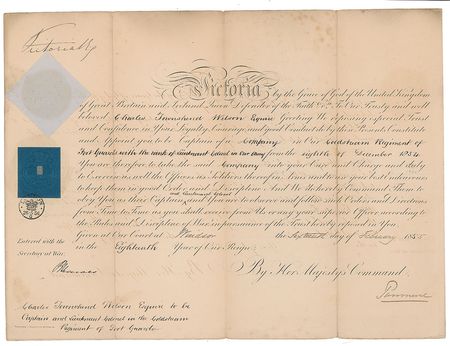 Victoria R
Victoria by the Grace of God of the United Kingdom
of Great Britain and Ireland Queen Defender of the Faith &c. To Our Trusty and well
beloved Charles Townshend Wilson Esquire Greeting We reposing especial Trust
and Confidence in Your Loyalty, Courage and good Conduct do by these Presents Constitute
and Appoint you to be Captain of a Company in Our Coldstream Regiment of
Foot Guards with the rank of Lieutenant Colonel in Our Army from the eighth of December 1854.
You are therefore to take the said Company into your Care and Charge and duly
to Exercise as well the Officers as Soldiers thereof in Arms and to use your best Endeavours
to keep them in good Order and Discipline And We do hereby Command Them to
and Lieutenant Colonel
Obey you as their Captain and You to observe and follow such Orders and Directions
from Time to Time as you shall receive from Us or any your superior Officer according to
the Rules and Discipline of War in pursuance of the Trust hereby reposed in You
Given at Our Court at Windsor the day of February 1855
in the Eighteenth Year of Our Reign
Entered with the
Secretary at War
By Her Majesty's Command
Panmure
Charles Townshend Wilson Esquire to be
Captain and Lieutenant Colonel in the Coldstream
Regiment of Foot Guards